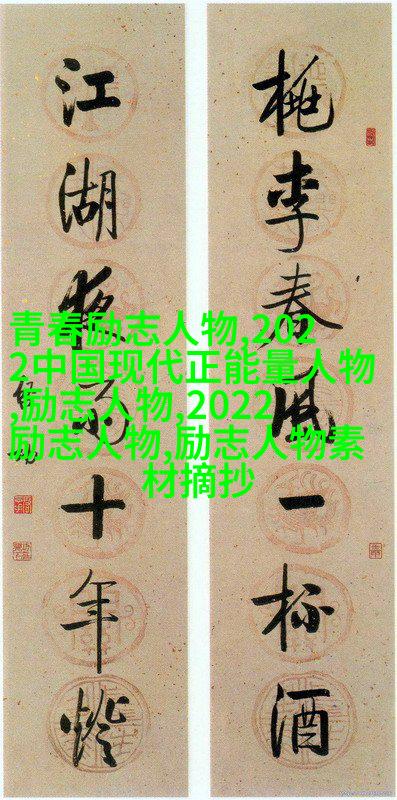 桃李春風一杯酒
江湖夜雨十年燈
青春励志人物,202
2中国现代正能量人物
,励志人物,2022
励志人物,励志人物素
材摘抄